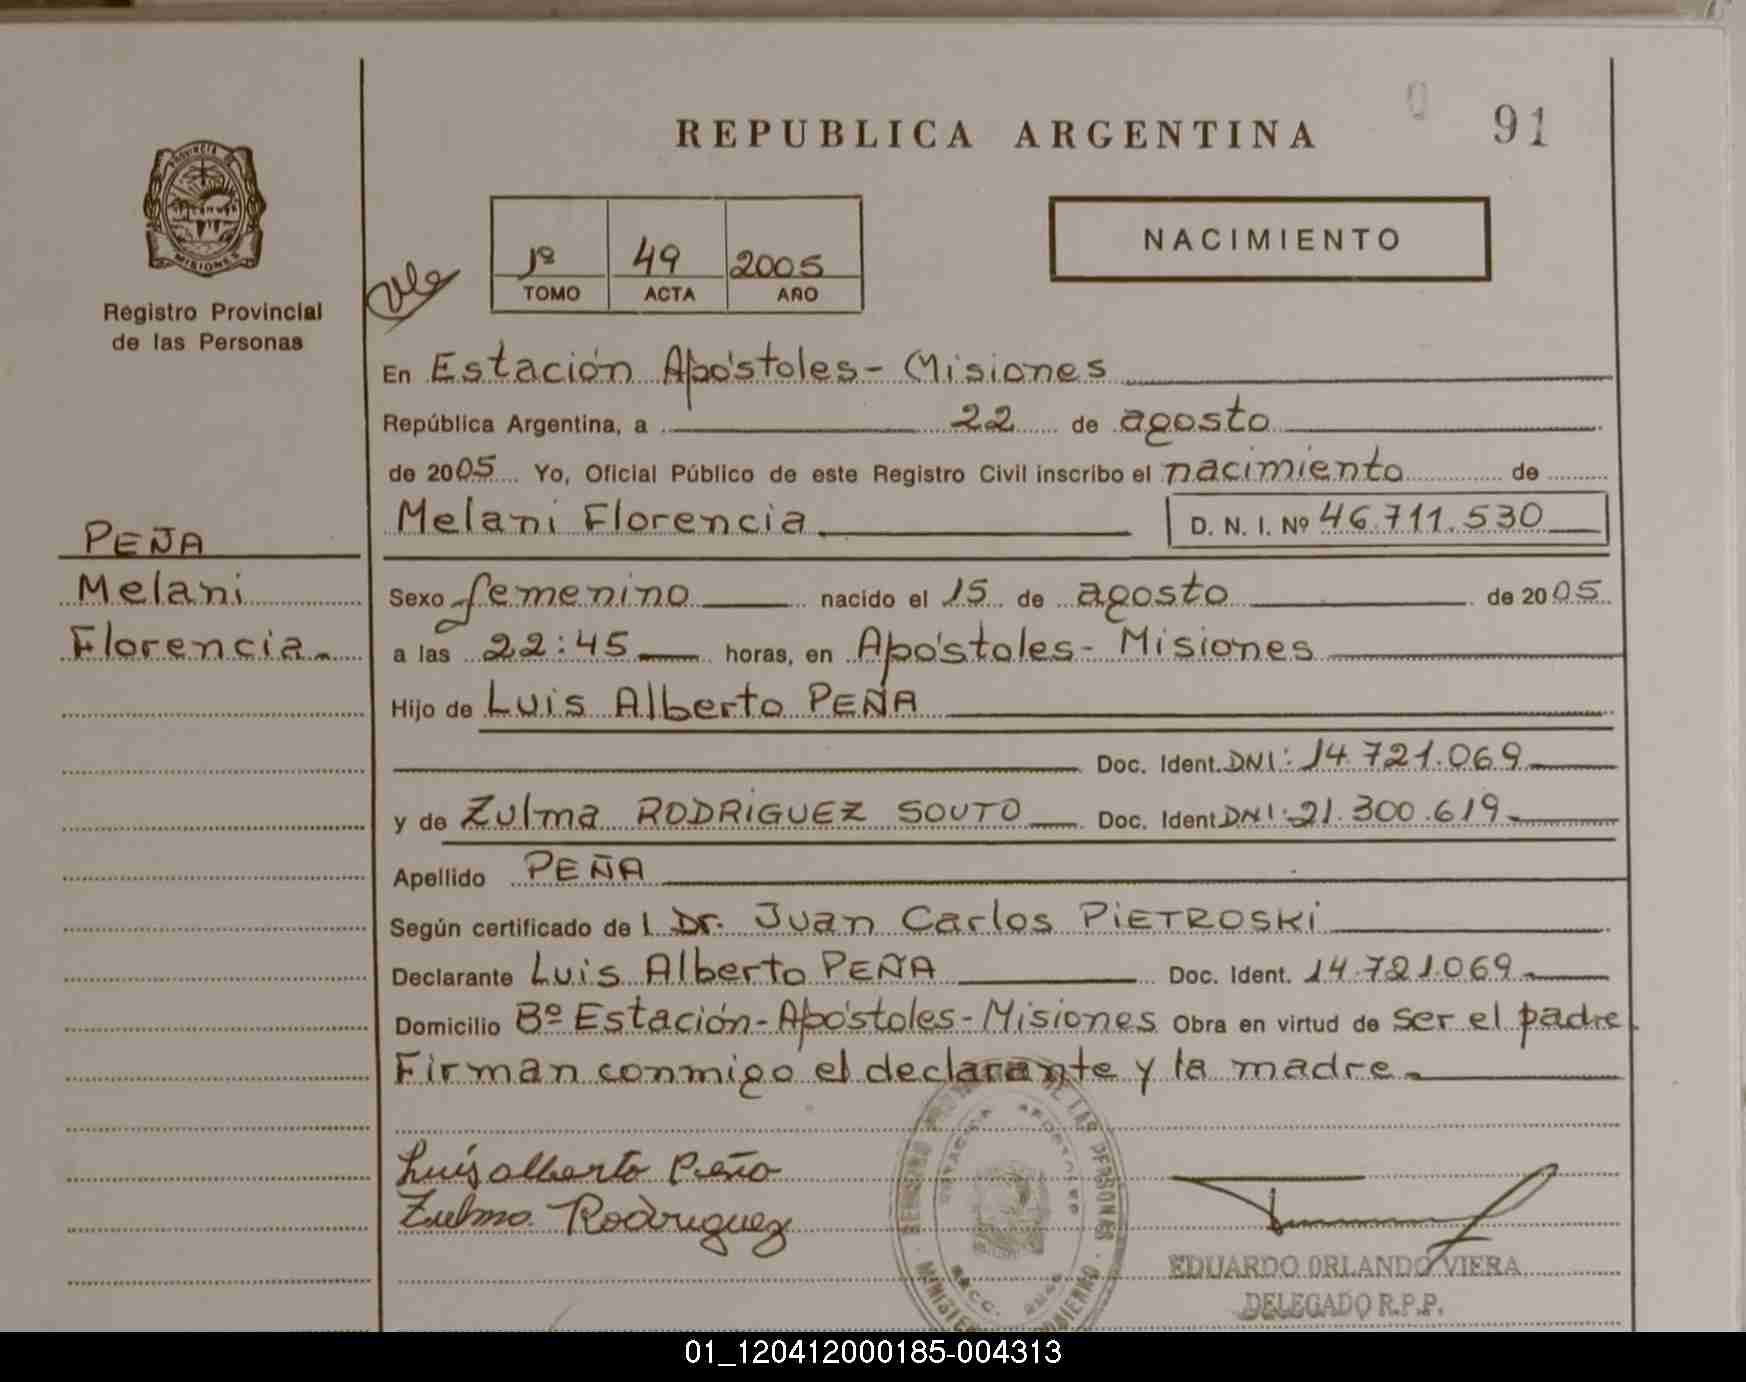 REPUBLICA ARGENTINA
91
PROVINCIA DE
MISIONES
Registro Provincial
de las Personas
NACIMIENTO
1º 49 2005
TOMO ACTA AÑO
En Estación Apóstoles - Misiones
República Argentina, a 22 de agosto
de 2005 Yo, Oficial Público de este Registro Civil inscribo el nacimiento de
Melani Florencia D. N. I. Nº 46.711.530
PEÑA
Melani
Florencia.
Sexo femenino nacido el 15 de agosto de 2005
a las 22:45 horas, en Apóstoles - Misiones
Hijo de Luis Alberto PEÑA
Doc. Ident. DNI: 14.721.069
y de Zulma RODRIGUEZ SOUTO Doc. Ident DNI: 21.300.619
Apellido PEÑA
Según certificado de l Dr. Juan Carlos PIETROSKI
Declarante Luis Alberto PEÑA Doc. Ident. 14.721.069
Domicilio Bº Estación - Apóstoles - Misiones Obra en virtud de ser el padre.
Firman conmigo el declarante y la madre.
Luis alberto Peña
Zulma Rodriguez
DE LAS PERSONAS
EDUARDO ORLANDO VIERA
DELEGADO R.P.P.
01_120412000185-004313